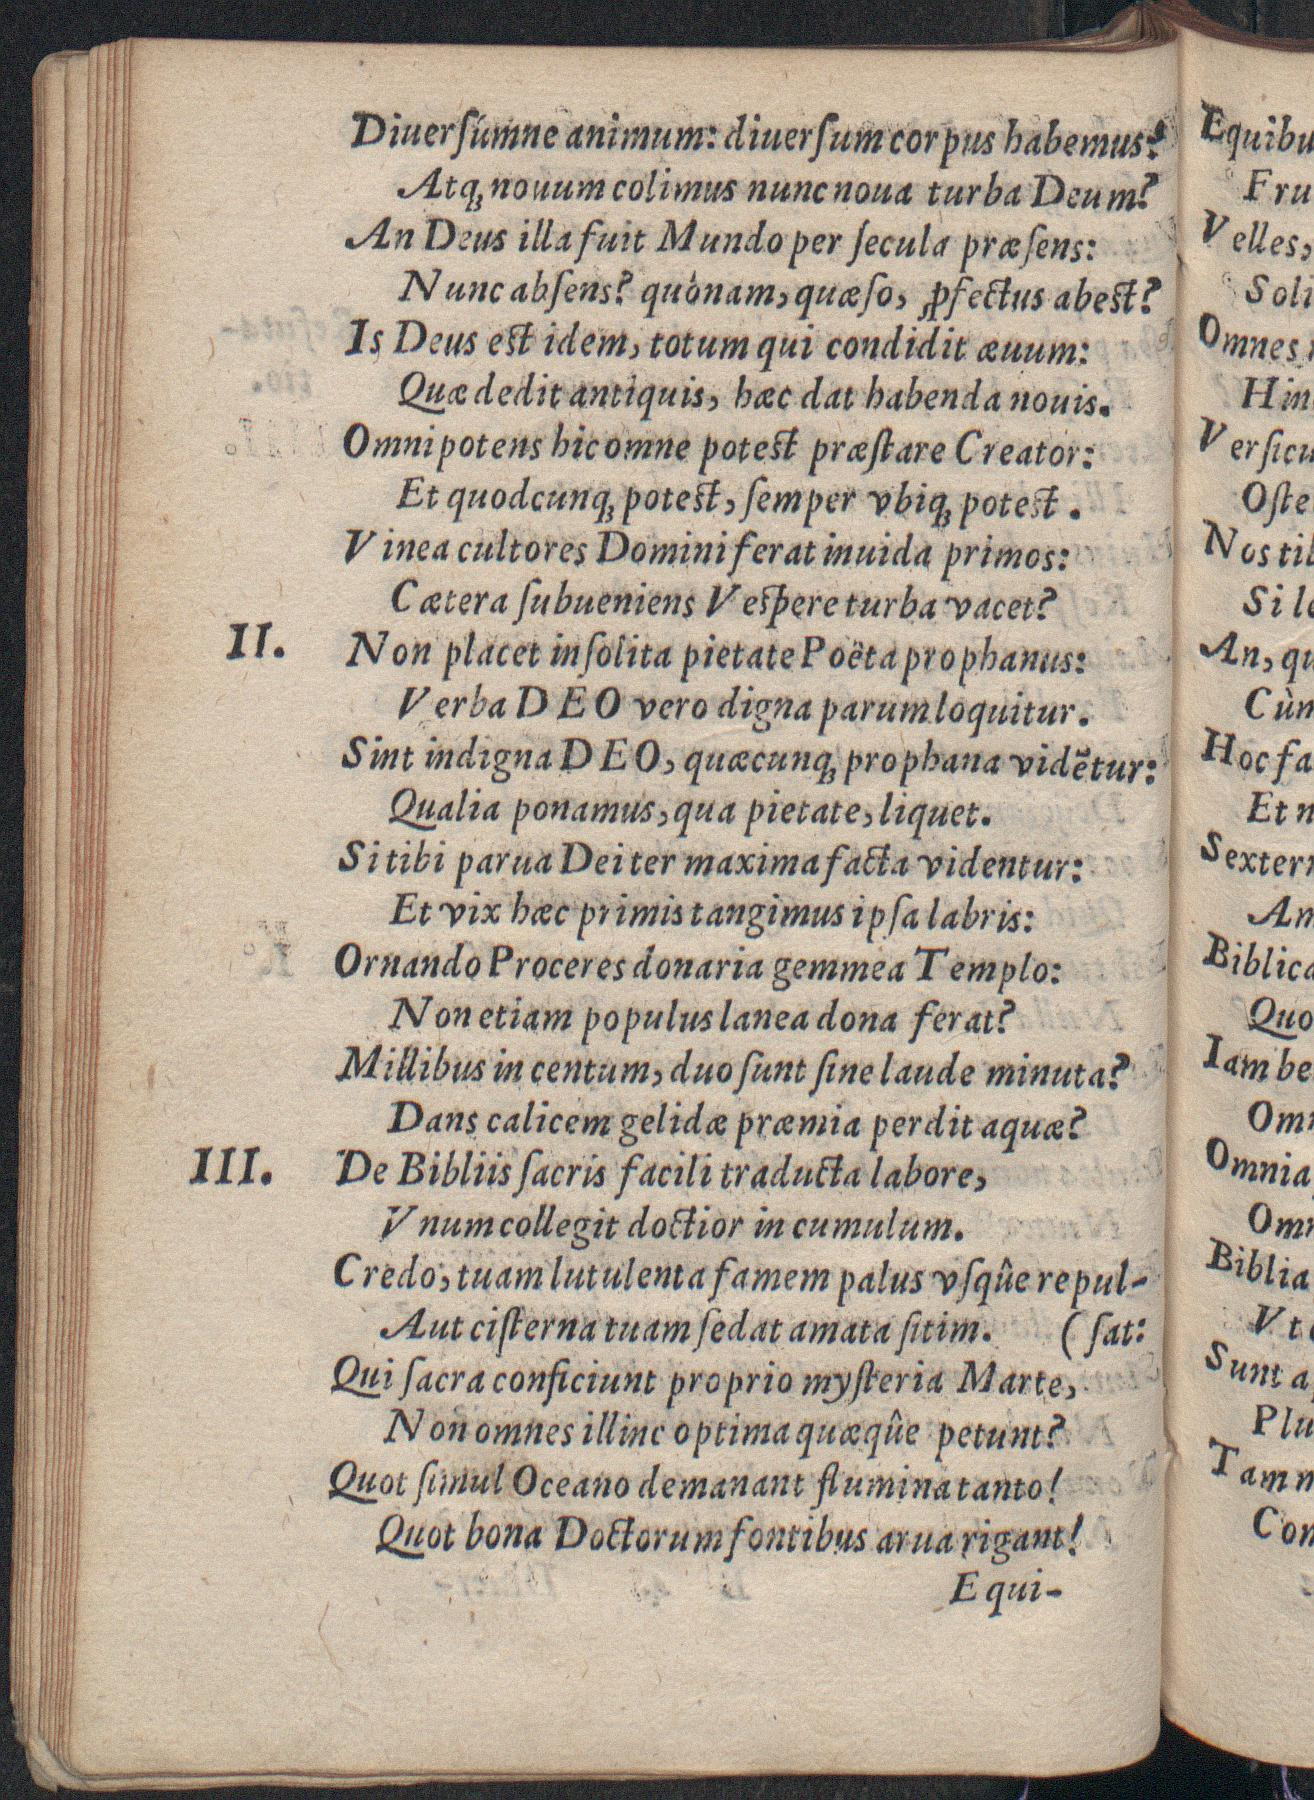 Diuerſúmne animum: diuerſum corpus habemus?
Atq; nouum colimus nunc noua turba Deum?
An Deus illa fuit Mundo per ſecula præſens:
Nunc abſens? quònam, quæſo, ꝓfectus abest?
Is Deus est idem, totum qui condidit æuum:
Quæ dedit antiquis, hæc dat habenda nouis.
Omnipotens hic omne potest præſtare Creator:
Et quodcunq; potest, ſemper vbiq; potest.
Vinea cultores Domini ferat inuida primos:
Cætera ſubueniens Vespere turba vacet?
II. Non placet inſolita pietate Poëta prophanus:
Verba DEO vero digna parum loquitur.
Sint indigna DEO, quæcunq; prophana vidētur:
Qualia ponamus, qua pietate, liquet.
Si tibi parua Dei ter maxima facta videntur:
Et vix hæc primis tangimus ipſa labris:
Ornando Proceres donaria gemmea Templo:
Non etiam populus lanea dona ferat?
Millibus in centum, duo ſunt ſine laude minuta?
Dans calicem gelidæ præmia perdit aquæ?
III. De Bibliis ſacris facili traducta labore,
Vnum collegit doctior in cumulum.
Credo, tuam lutulenta famem palus vſqûe repul-
Aut ciſterna tuam ſedat amata ſitim. (ſat:
Qui ſacra conficiunt proprio myſteria Marte,
Non omnes illinc optima quæqûe petunt?
Quot ſimul Oceano demanant flumina tanto!
Quot bona Doctorum fontibus arua rigant!
Equi-
Equibu
Fru
Velles,
Soli
Omnes
Hin
Verſicu
Oſte
Nos til
Si le
An, qu
Cùm
Hoc fa
Et n
Sextern
Am
Biblica
Quo
Iam be
Omn
Omnia
Omn
Biblia
Vt
Sunt a
Plu
Tam n
Con